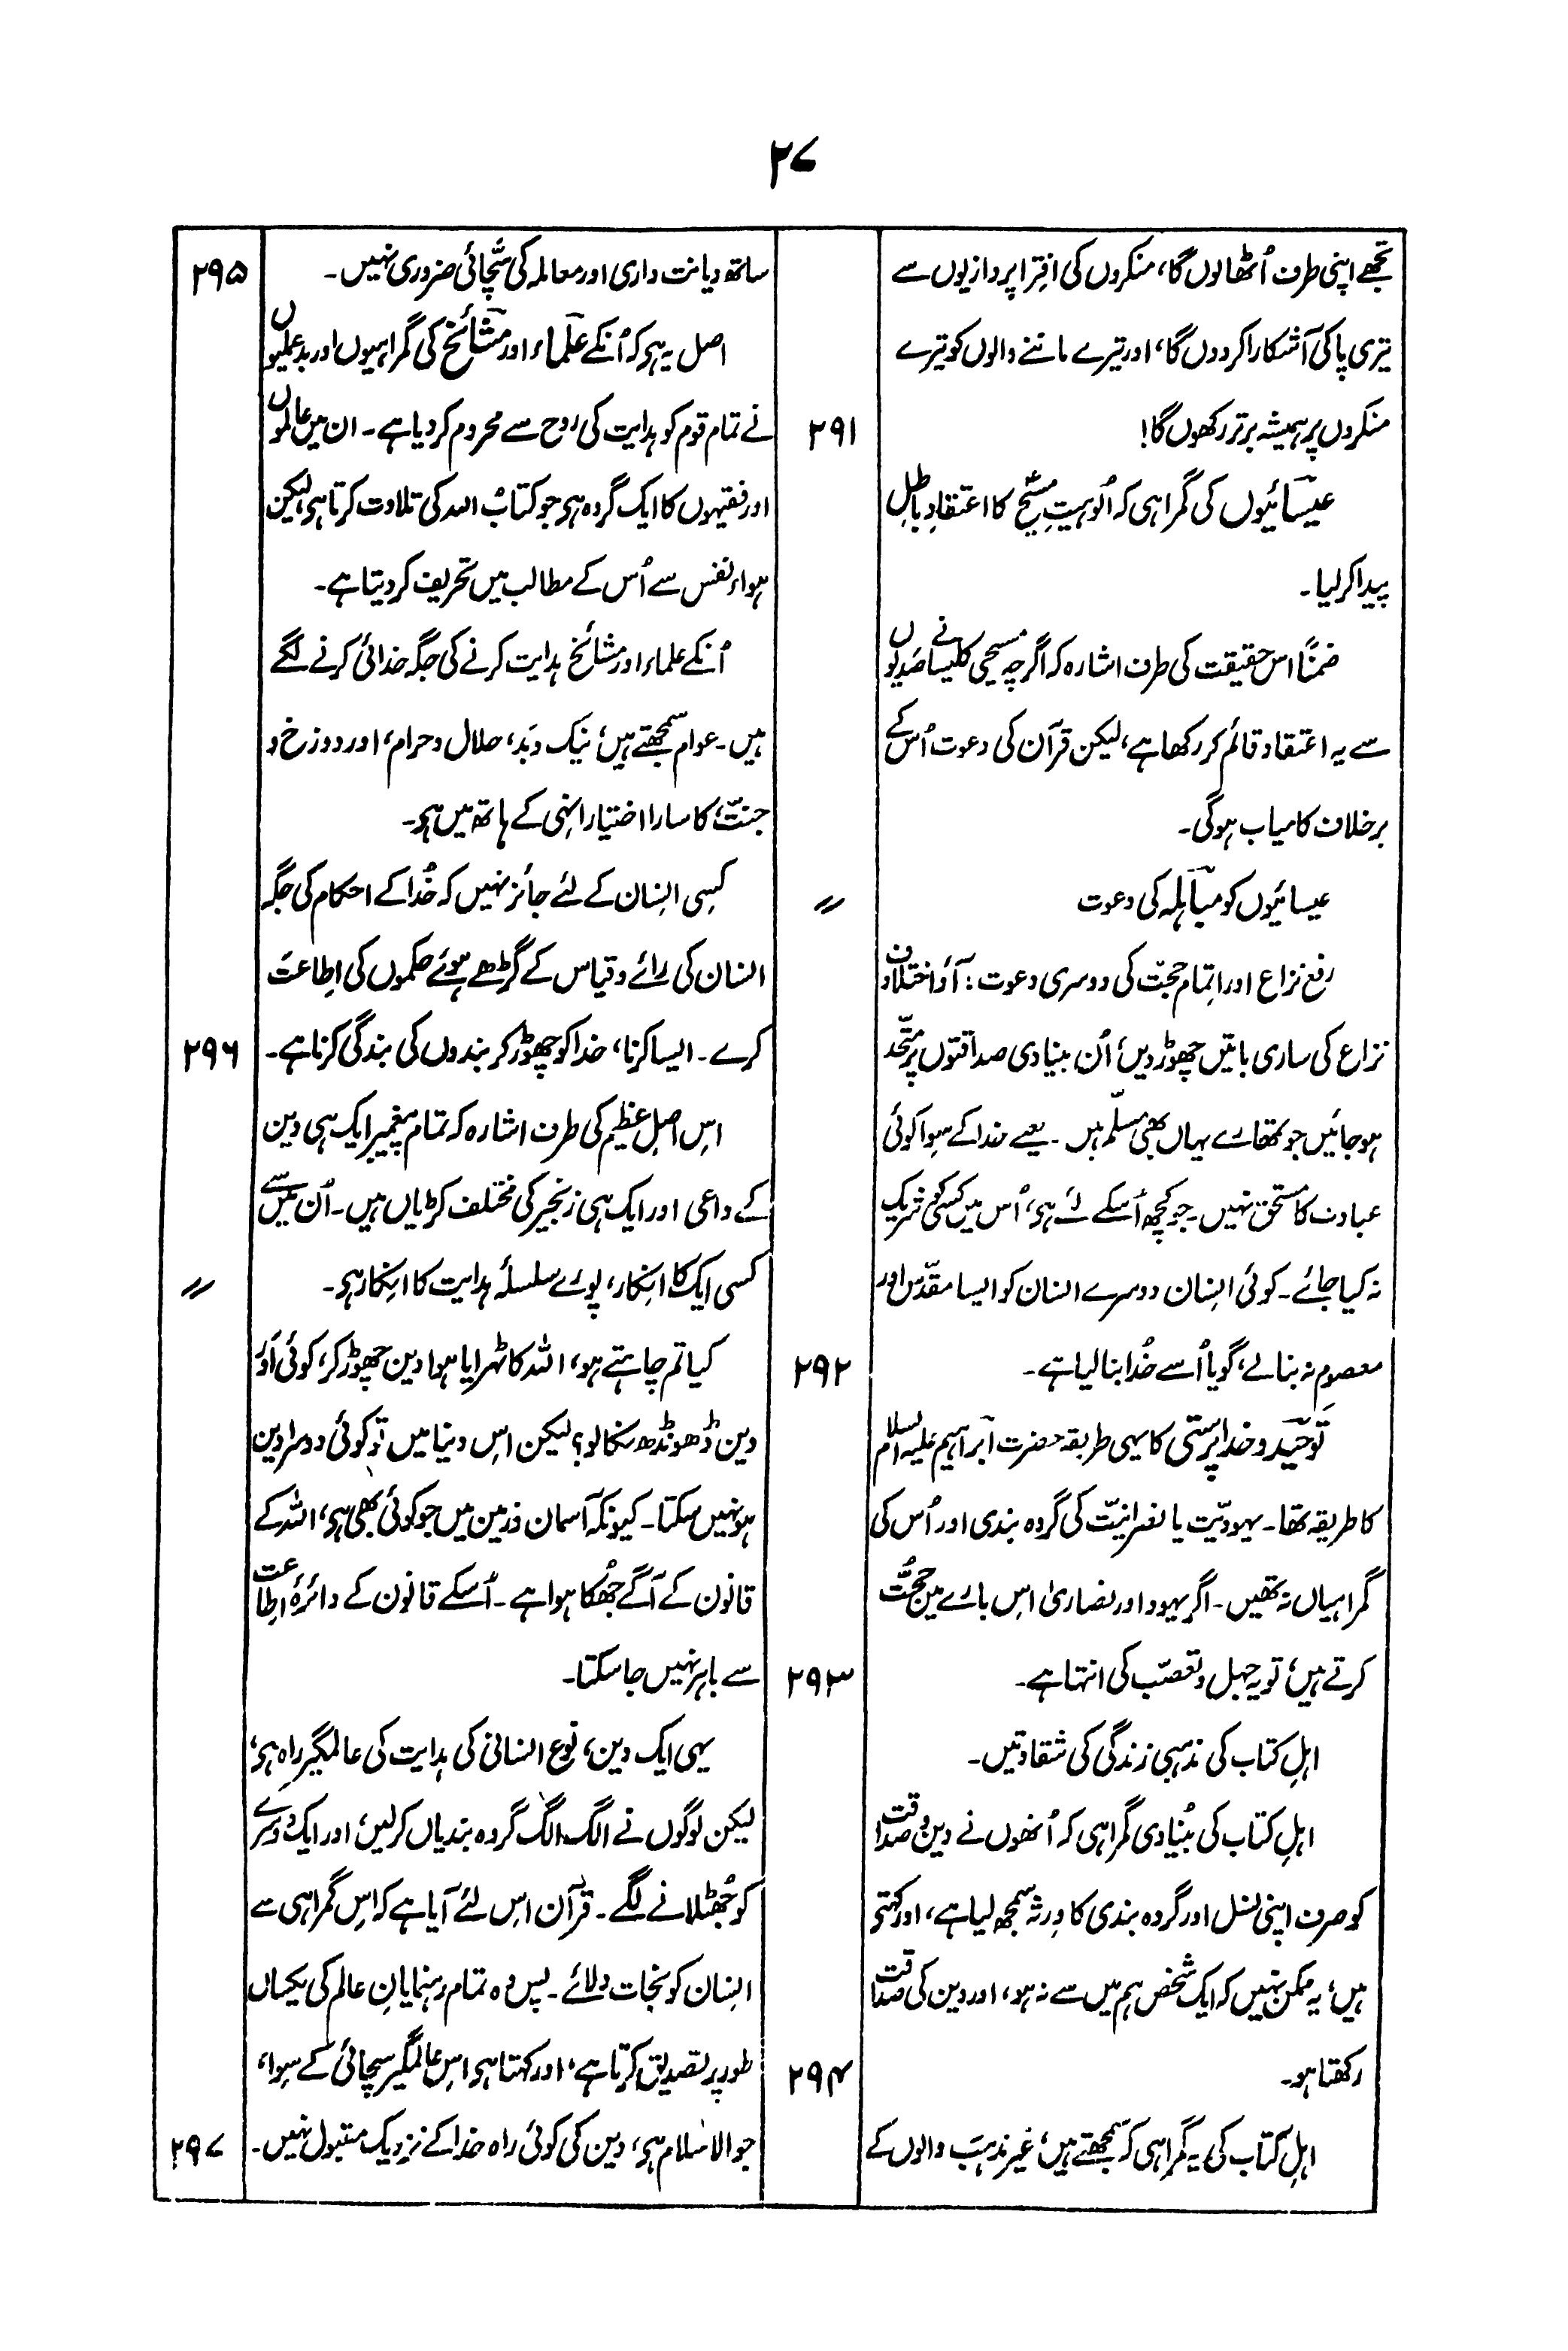 ۲۷
تجھے اپنی طرف اُٹھالوں گا، منکروں کی افترا پردازیوں سے
تیری پاکی آشکارا کردوں گا، اور تیرے ماننے والوں کو تیرے
منکروں پر ہمیشہ برتر رکھوں گا! ۲۹۱
عیسائیوں کی گمراہی کہ اُلوہیتِ مسیح کا اعتقادِ باطل
پیدا کرلیا۔
ضمناً اس حقیقت کی طرف اشارہ کہ اگرچہ مسیحی کلیسا نے صدیوں
سے یہ اعتقاد قائم کر رکھا ہے، لیکن قرآن کی دعوت اُس کے
برخلاف کامیاب ہوگی۔
عیسائیوں کو مباہلہ کی دعوت 〃
رفع نزاع اور اتمام حجّت کی دوسری دعوت: آؤ اختلاف و
نزاع کی ساری باتیں چھوڑ دیں، اُن بنیادی صداقتوں پر متّحد
ہوجائیں جو تمھارے یہاں بھی مسلّم ہیں۔ یعنے خدا کے سوا کوئی
عبادت کا مستحق نہیں۔ جو کچھ اُسکے لئے ہو، اُس میں کسی کو شریک
نہ کیا جائے۔ کوئی انسان دوسرے انسان کو ایسا مقدّس اور
معصوم نہ بنالے، گویا اُسے خُدا بنا لیا ہے۔ ۲۹۲
توحید و خدا پرستی کا یہی طریقہ حضرت ابراہیم علیہ السلام
کا طریقہ تھا۔ یہودیّت یا نصرانیّت کی گروہ بندی اور اُس کی
گمراہیاں نہ تھیں۔ اگر یہود اور نصاریٰ اس بارے میں حجّت
کرتے ہیں، تو یہ جہل و تعصّب کی انتہا ہے۔ ۲۹۳
اہلِ کتاب کی مذہبی زندگی کی شقاوتیں۔
اہلِ کتاب کی بُنیادی گمراہی کہ اُنھوں نے دین و صداقت
کو صرف اپنی نسل اور گروہ بندی کا ورثہ سمجھ لیا ہے، اور کہتے
ہیں، یہ ممکن نہیں کہ ایک شخص ہم میں سے نہ ہو، اور دین کی صداقت
رکھتا ہو۔ ۲۹۴
اہلِ کتاب کی یہ گمراہی کہ سمجھتے ہیں، غیر مذہب والوں کے
ساتھ دیانت داری اور معاملہ کی سچّائی ضروری نہیں۔ ۲۹۵
اصل یہ ہے کہ اُنکے علماء اور مشائخ کی گمراہیوں اور بدعملیوں
نے تمام قوم کو ہدایت کی روح سے محروم کردیا ہے۔ ان میں عالموں
اور فقیہوں کا ایک گروہ ہے جو کتابُ اللہ کی تلاوت کرتا ہے، لیکن
ہواء نفس سے اُس کے مطالب میں تحریف کردیتا ہے۔
اُنکے علماء اور مشائخ ہدایت کرنے کی جگہ خدائی کرنے لگے
ہیں۔ عوام سمجھتے ہیں، نیک و بَد، حلال و حرام، اور دوزخ و
جنت، کا سارا اختیار انہی کے ہاتھ میں ہے۔
کسی انسان کے لئے جائز نہیں کہ خُدا کے احکام کی جگہ
انسان کی رائے و قیاس کے گڑھے ہوئے حکموں کی اطاعت
کرے۔ ایسا کرنا، خدا کو چھوڑ کر بندوں کی بندگی کرنا ہے۔ ۲۹۶
اس اصلِ عظیم کی طرف اشارہ کہ تمام پیغمبر ایک ہی دین
کے داعی اور ایک ہی زنجیر کی مختلف کڑیاں ہیں۔ اُن میں سے
کسی ایک کا انکار، پورے سلسلۂ ہدایت کا انکار ہے۔ 〃
کیا تم چاہتے ہو، اللہ کا ٹھہرایا ہوا دین چھوڑ کر، کوئی اَور
دین ڈھونڈھ نکالو؟ لیکن اس دنیا میں تو کوئی دوسرا دین
ہو نہیں سکتا۔ کیونکہ آسمان و زمین میں جو کوئی بھی ہے، اللہ کے
قانون کے آگے جُھکا ہوا ہے۔ اُسکے قانون کے دائرۂ اطاعت
سے باہر نہیں جاسکتا۔
یہی ایک دین، نوع انسانی کی ہدایت کی عالمگیر راہ ہے،
لیکن لوگوں نے الگ الگ گروہ بندیاں کرلیں، اور ایک دوسرے
کو جُھٹلانے لگے۔ قرآن اس لئے آیا ہے کہ اس گمراہی سے
انسان کو نجات دلائے۔ پس وہ تمام رہنمایانِ عالم کی یکساں
طور پر تصدیق کرتا ہے، اور کہتا ہے، اس عالمگیر سچائی کے سوا،
جو الاسلام ہے، دین کی کوئی راہ خدا کے نزدیک مقبول نہیں۔ ۲۹۷